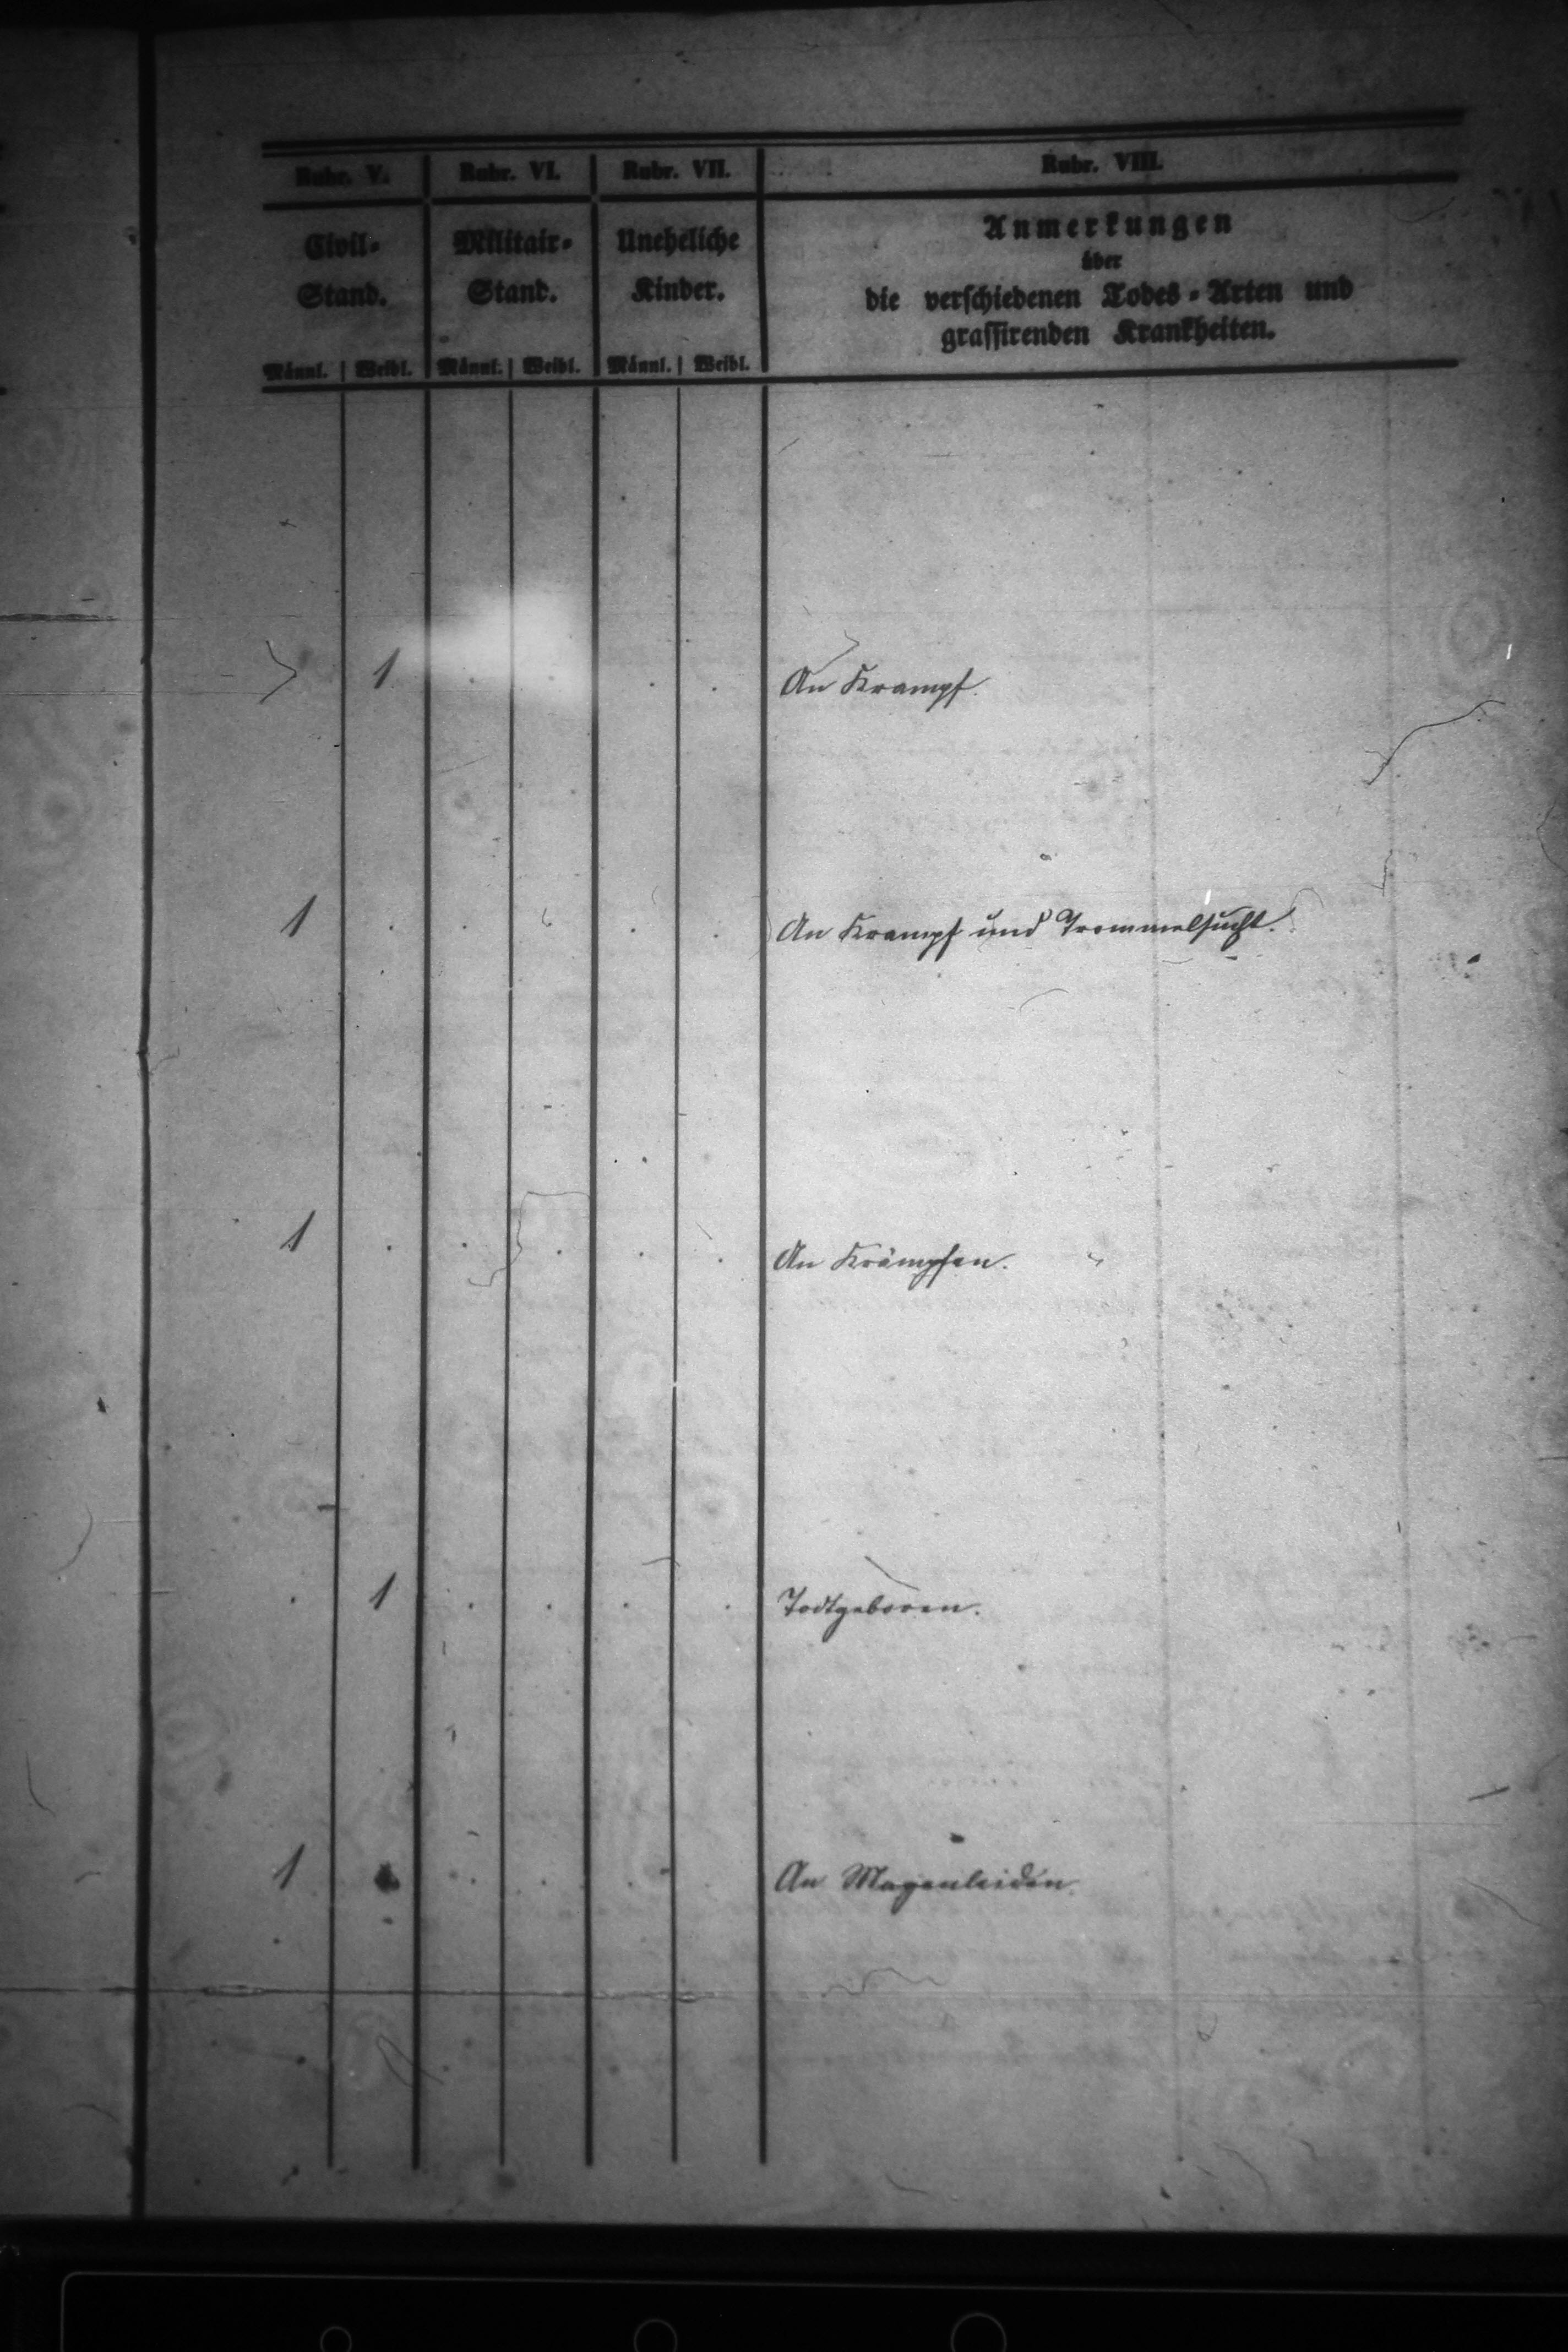 Rubr. V. Rubr. VI. Rubr. VII. Rubr. VIII.
Civil- Militair- Uneheliche Anmerkungen
Stand. Stand. Kinder. über
die verschiedenen Todes-Arten und
grassirenden Krankheiten.
Männl. Weibl. Männl. Weibl. Männl. Weibl.
1 An Krampf.
1 An Krampf und Trommelsucht.
1 An Krämpfen.
1 Todtgeboren.
1 An Magenleiden.